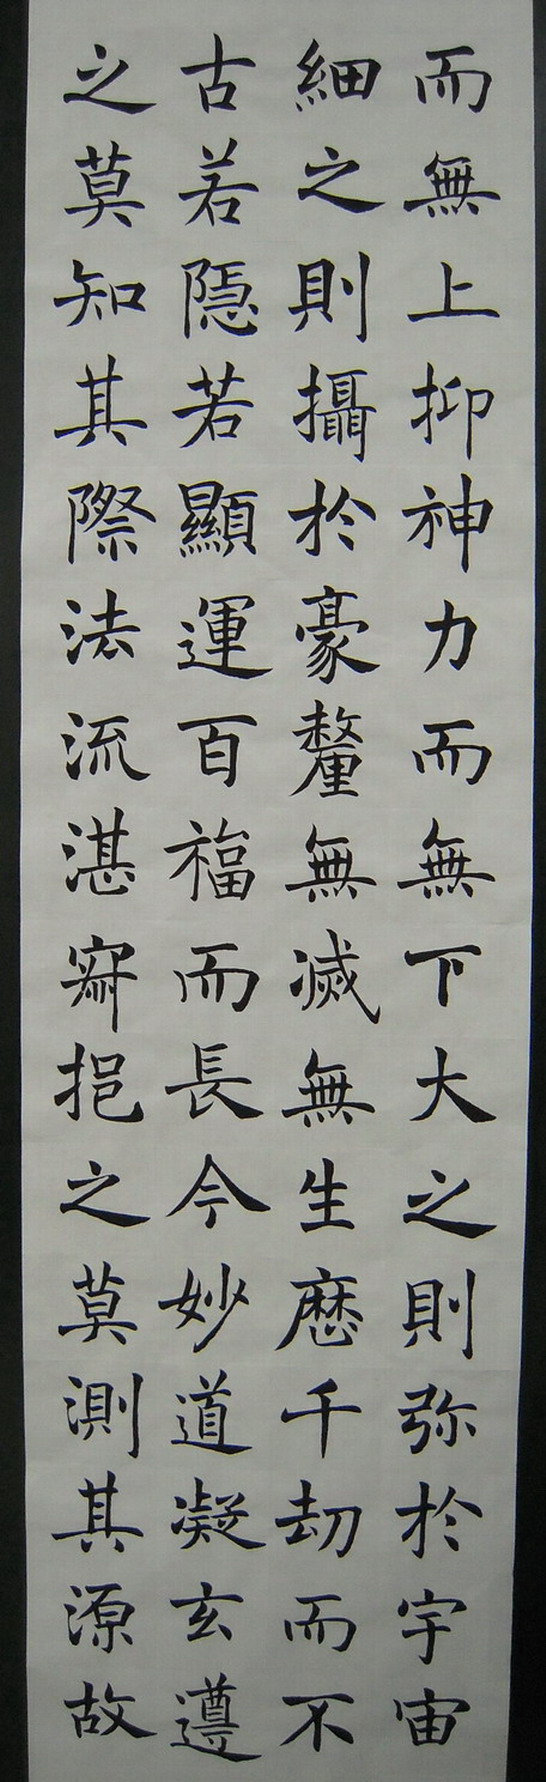 而無上抑神力而無下大之則弥於宇宙
細之則攝於豪釐無滅無生歷千劫而不
古若隱若顯運百福而長今妙道凝玄遵
之莫知其際法流湛寂挹之莫測其源故